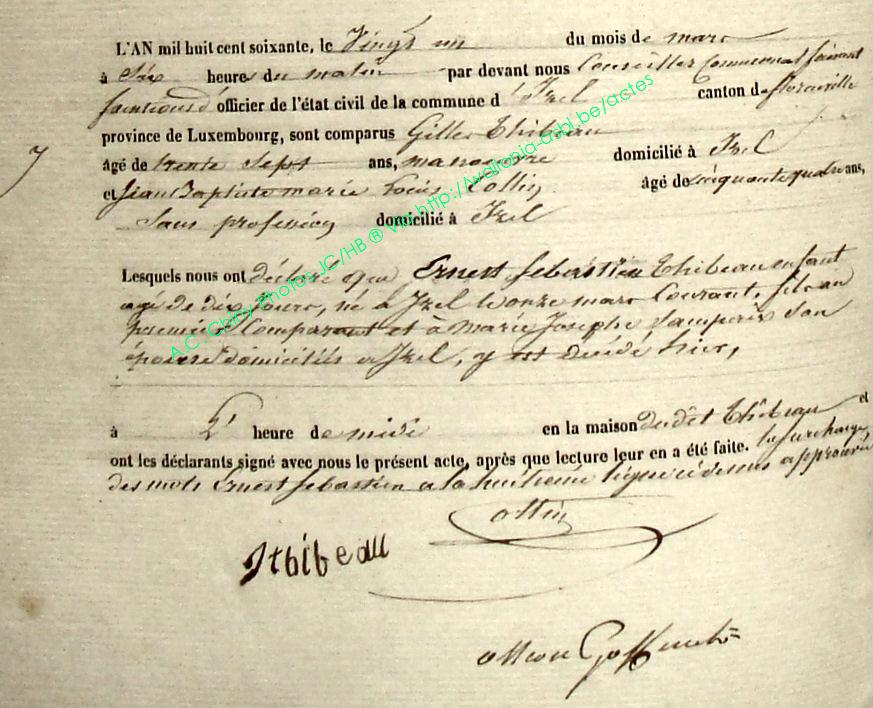 L'AN mil huit cent soixante, le Vingt un du mois de mars
à Six heures du matin par devant nous Conseiller Communal faisant
fonctions d'officier de l'état civil de la commune d'Izel canton de florenville
province de Luxembourg, sont comparus Gilles Thibeau
7 âgé de trente Sept ans, manoeuvre domicilié à Izel
et Jean Baptiste marie Louis Collin âgé de cinquante quatre ans,
Sans profession domicilié à Izel
Lesquels nous ont déclaré que Ernest Sebastien Thibeau enfant
agé de dix jours, né à Izel le onze mars Courant, fils au
premier Comparant et à Marie Josephe Son
épouse domiciliés à Izel, y est décédé hier,
à heure de midi en la maison dudit Thibeau et
ont les déclarants signé avec nous le présent acte, après que lecture leur en a été faite. la surcharge
des mots Ernest Sebastien a la huitieme ligne ci dessus approuvée
Collin
Thibeau
A.C. Chiny Photos JC/HB ® Via http://wallonia-asbl.be/actes